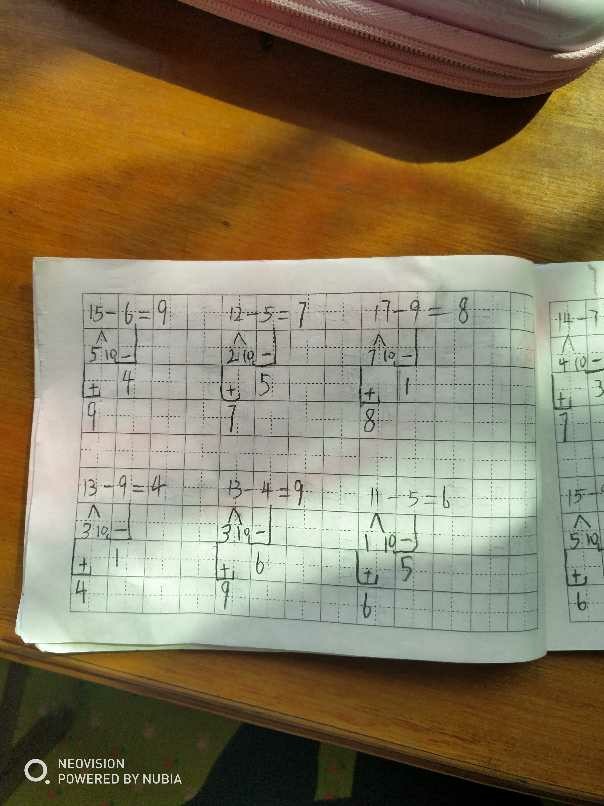 15-6=9 12-5=7 17-9=8 14-7
5 10 - 2 10 - 7 10 - 4 10 -
+ 4 + 5 + 1 + 3
9 7 8 7
13-9=4 13-4=9 11-5=6 15-
3 10 - 3 10 - 1 10 - 5 10
+ 1 + 6 + 5 +
4 9 6 6
NEOVISION
POWERED BY NUBIA